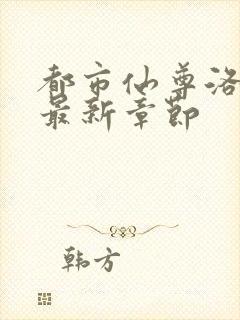 都市仙尊洛
最新章節
韩方